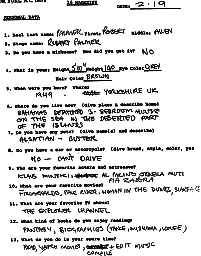 16 MAGAZINE
DATE: 2.19
PERSONAL DATA
1. Real Last Name: PALMER First: ROBERT Middle: ALLEN
2. Stage name: ROBERT PALMER
3. Do you have a nickname? How did you get it? NO
4. What is your: Height 5'11" Weight 140 Eye Color GREY
Hair Color BROWN
5. When were you born? Where?
1949. YORKSHIRE UK
6. Where do you live now? (Give place & describe home)
BAHAMAS DETATCHED 3-BEDROOM HOUSE
ON THE SEA IN THE DESERTED PART
OF THE ISLANDS
7. Do you have any pets? (Give name(s) and describe)
ALSATIAN -
8. Do you have a car or motorcycle? (Give brand, style, color, yes
NO - CAN'T DRIVE
9. Who are your favorite actors and actresses?
KLAUS KINSKI AL PACINO
PIA ZADORA
10. What are your favorite movies?
FITZCARRALDO,
11. What are your favorite TV shows?
THE EXPLORER CHANNEL
12. What kind of books do you enjoy reading?
FANTASY, BIOGRAPHIES
13. What do you do in your spare time?
READ, WATCH MOVIES, EDIT MUSIC
COMPILE